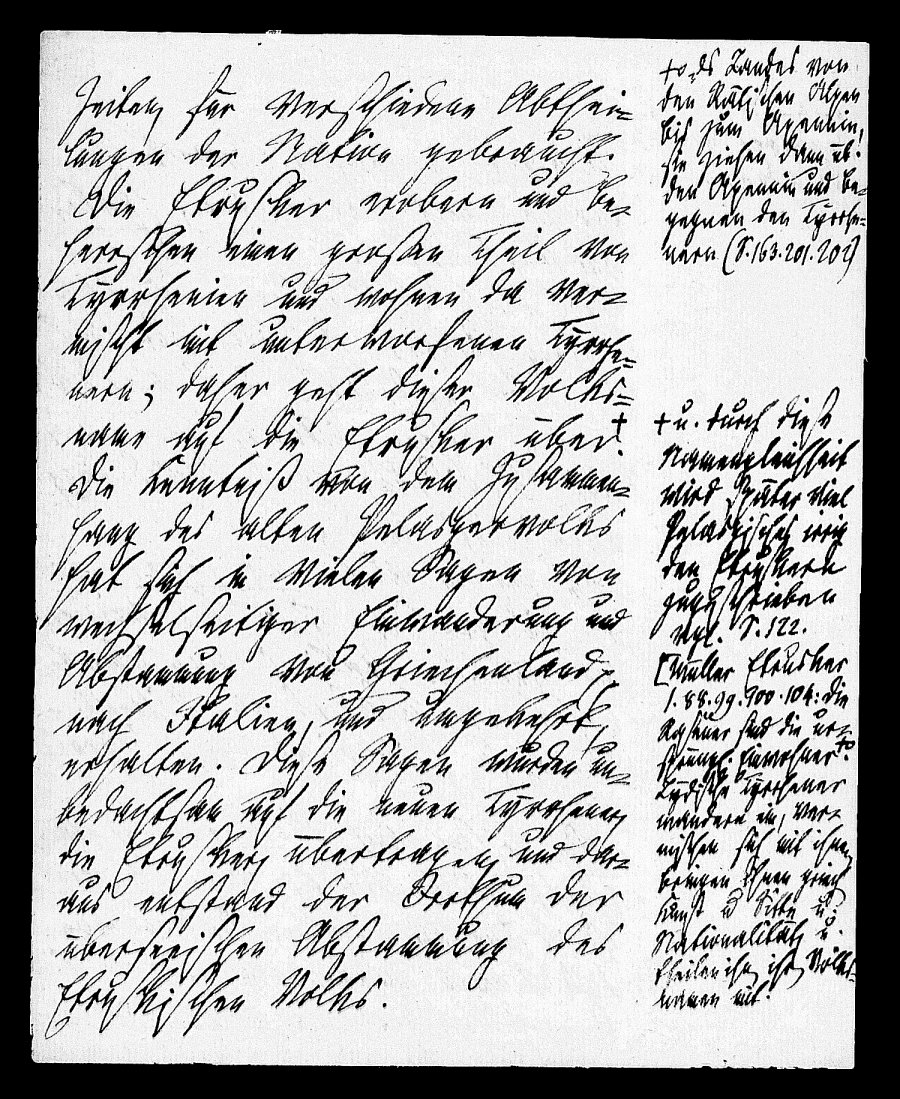 Zeiten, für verschiedene Abthei-
lungen der Nation gebraucht.
Die Etrusker erobern und be-
herrschen einen großen Theil von
Tyrrhenien und wohnen da ver-
mischt mit unterworfenen Tyrrhe-
nern; daher geht dieser Volks-
name auf die Etrusker über. +
Die Kenntniß von dem Zusammen-
hang des alten Pelasgervolks
hat sich in vielen Sagen von
wechselseitiger Einwanderung und
Abstammung von Griechenland
nach Italien, und umgekehrt,
erhalten. Diese Sagen wurden un-
bedachtsam auf die neuen Tyrrhener,
die Etrusker, übertragen, und dar-
aus entstand der Irrthum der
überseeischen Abstammung des
Etruskischen Volks.
+o ds Landes von
den Rätischen Alpen
bis zum Apennin,
sie ziehen dann üb.
den Apennin und be-
gegnen den Tyrrhe-
nern (S. 163. 201. 202)
+ u. durch diese
Namengleichheit
wird später viel
Pelasgisches irrig
den Etruskern
zugeschrieben
vgl. S. 122.
[Müller Etrusker
1. 88. 99. 100. 104: die
Rasener sind die ur-
sprüngl. Einwohner +o
Lydische Tyrrhener
wandern ein, ver-
mischen sich mit ihnen,
bringen ihnen griech
Kunst u Sitte u.
Nationalität, u.
theilen ihn. ihr. Volks-
namen mit.